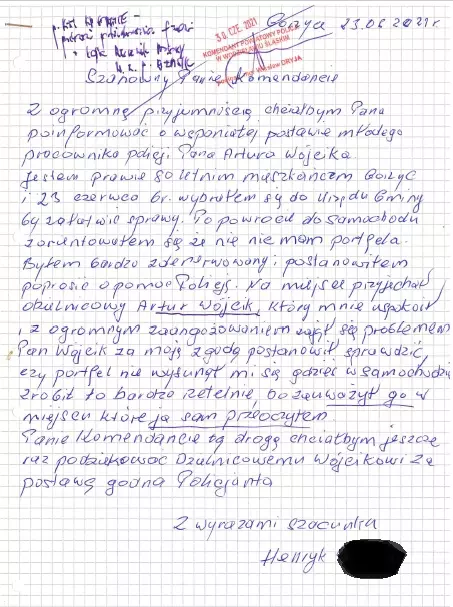 Gorzyce 23.06 2021r.
30. CZE. 2021
KOMENDANT POWIATOWY POLICJI
W WODZISŁAWIU ŚLĄSKIM
DRYJA
Szanowny Panie Komendancie
Z ogromną przyjemnością chciałbym Pana
poinformować o wspaniałej postawie młodego
pracownika policji Pana Artura Wójcika.
Jestem prawie 80 letnim mieszkańcem Gorzyc
i 23 czerwca br. wybrałem się do Urzędu Gminy
by załatwić sprawy. Po powrocie do samochodu
zorientowałem się że nie mam portfela.
Byłem bardzo zdenerwowany i postanowiłem
poprosić o pomoc Policję. Na miejsce przyjechał
dzielnicowy Artur Wójcik, który mnie uspokoił
i z ogromnym zaangożowaniem zajął się problemem
Pan Wójcik za moją zgodą postanowił sprawdzić
czy portfel nie wysunął mi się gdzieś w samochodzie
zrobił to bardzo rzetelnie, bo zauważył go w
miejscu które ja sam przeoczyłem.
Panie Komendancie tą drogą chciałbym jeszcze
raz podziękować Dzielnicowemu Wójcikowi za
postawę godną Policjanta
Z wyrazami szacunku
Henryk